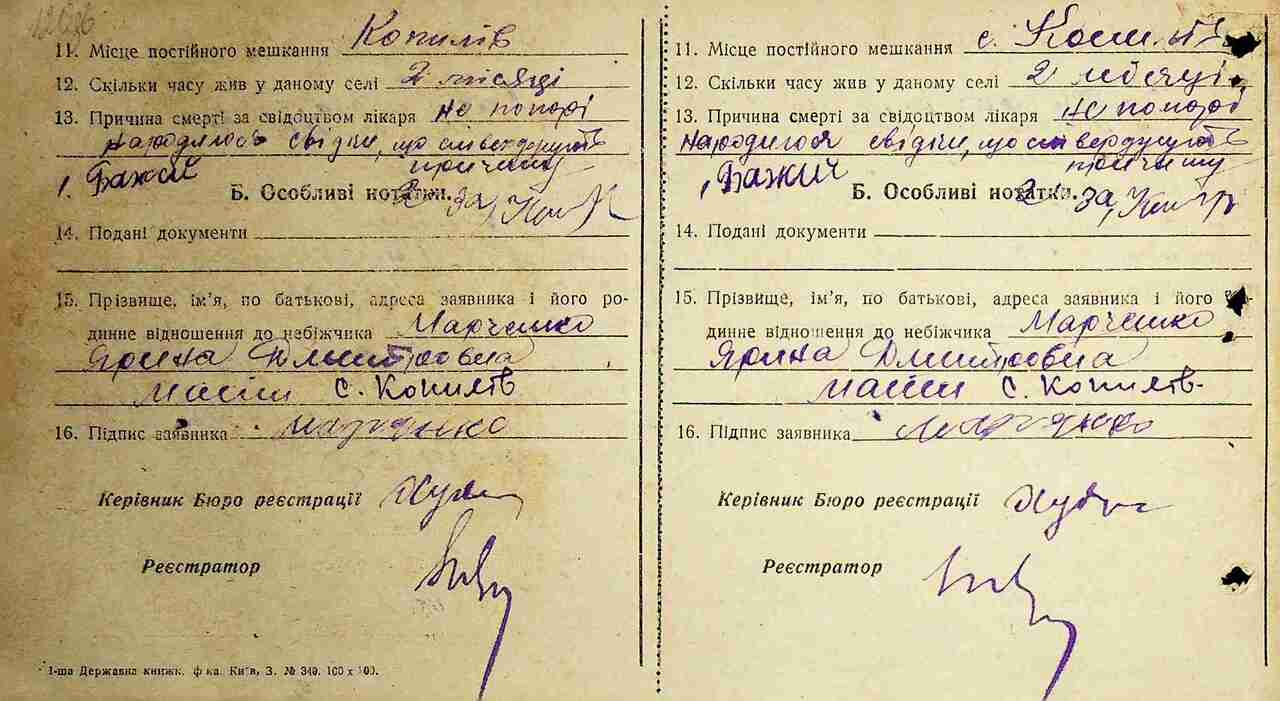 11. Місце постійного мешкання Копилів
12. Скільки часу жив у даному селі 2 місяці
13. Причина смерті за свідоцтвом лікаря не попорі
народилось свідки, що
причину
1. Бажий
Б. Особливі нотатки. 2. За
14. Подані документи
15. Прізвище, ім'я, по батькові, адреса заявника і його ро-
динне відношення до небіжчика Марченко
Ярина Дмитровна
мати с. Копилів
16. Підпис заявника Марченко
Керівник Бюро реєстрації
Реєстратор
1-ша Державна книжк. ф-ка. Київ, З. № 349. 100 х 100.
11. Місце постійного мешкання с.
12. Скільки часу жив у даному селі 2 місяці
13. Причина смерті за свідоцтвом лікаря не попорі
народилося свідки, що
причину
1. Бажий
Б. Особливі нотатки. 2. За
14. Подані документи
15. Прізвище, ім'я, по батькові, адреса заявника і його ро-
динне відношення до небіжчика Марченко
Ярина Дмитровна
мати с. Копилів
16. Підпис заявника Марченко
Керівник Бюро реєстрації
Реєстратор